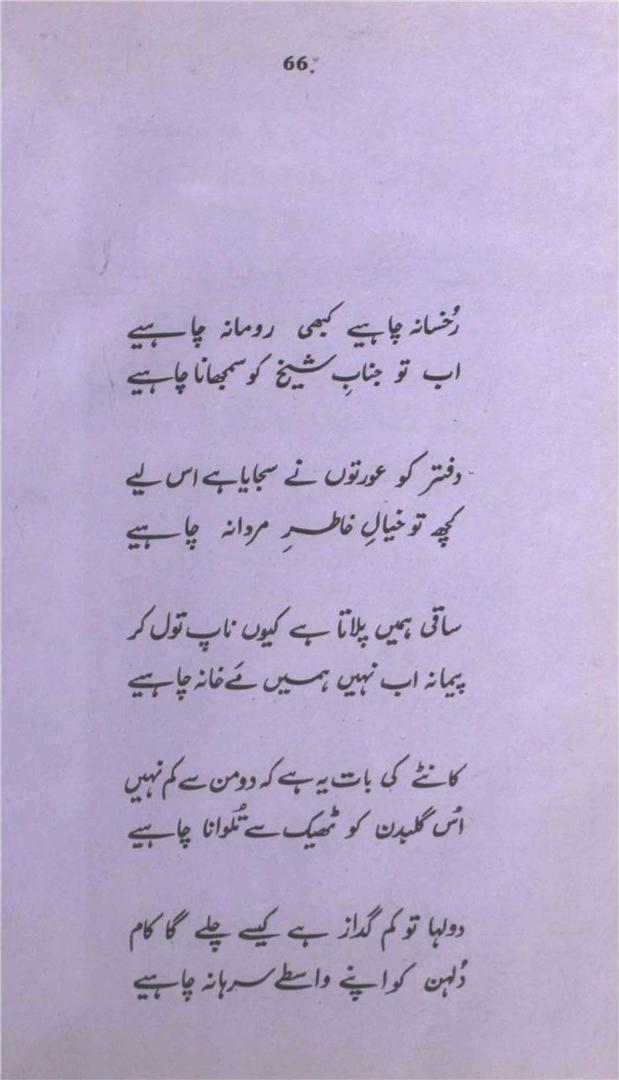 66.
رُخسانہ چاہیے کبھی رومانہ چاہیے
اب تو جنابِ شیخ کو سمجھانا چاہیے
دفتر کو عورتوں نے سجایا ہے اس لیے
کچھ تو خیالِ خاطرِ مردانہ چاہیے
ساقی ہمیں پلاتا ہے کیوں ناپ تول کر
پیمانہ اب نہیں ہمیں مَے خانہ چاہیے
کانٹے کی بات یہ ہے کہ دو من سے کم نہیں
اُس گلبدن کو ٹھیک سے تُلوانا چاہیے
دولہا تو کم گداز ہے کیسے چلے گا کام
دُلہن کو اپنے واسطے سرہانہ چاہیے